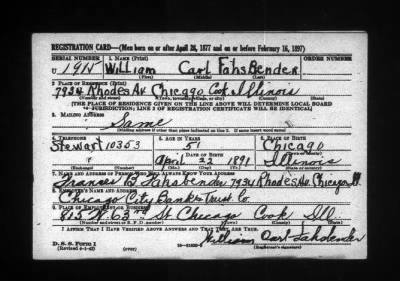 REGISTRATION CARD—(Men born on or after April 28, 1877 and on or before February 16, 1897)
SERIAL NUMBER 1. NAME (Print) ORDER NUMBER
U 1915 William Carl Fahsbender
(First) (Middle) (Last)
2. PLACE OF RESIDENCE (Print)
7934 Rhodes Av Chicago Cook Illinois
(Number and street) (Town, township, village, or city) (County) (State)
[THE PLACE OF RESIDENCE GIVEN ON THE LINE ABOVE WILL DETERMINE LOCAL BOARD
JURISDICTION; LINE 2 OF REGISTRATION CERTIFICATE WILL BE IDENTICAL]
3. MAILING ADDRESS
Same
[Mailing address if other than place indicated on line 2. If same insert word same]
4. TELEPHONE 5. AGE IN YEARS 6. PLACE OF BIRTH
Stewart 10353 51 Chicago
DATE OF BIRTH
April 22 1891 Illinois
(Mo.) (Day) (Yr.) (State or country)
7. NAME AND ADDRESS OF PERSON WHO WILL ALWAYS KNOW YOUR ADDRESS
Fahsbender 7934 Rhodes Av Chicago Ill
8. EMPLOYER'S NAME AND ADDRESS
Chicago City Bank & Trust Co.
9. PLACE OF EMPLOYMENT OR BUSINESS
815 W 63rd St Chicago Cook Ill
(Number and street or R. F. D. number) (Town) (County) (State)
I AFFIRM THAT I HAVE VERIFIED ABOVE ANSWERS AND THAT THEY ARE TRUE.
William Carl Fahsbender
D. S. S. Form 1
(Revised 4-1-42) (over) (Registrant's signature)